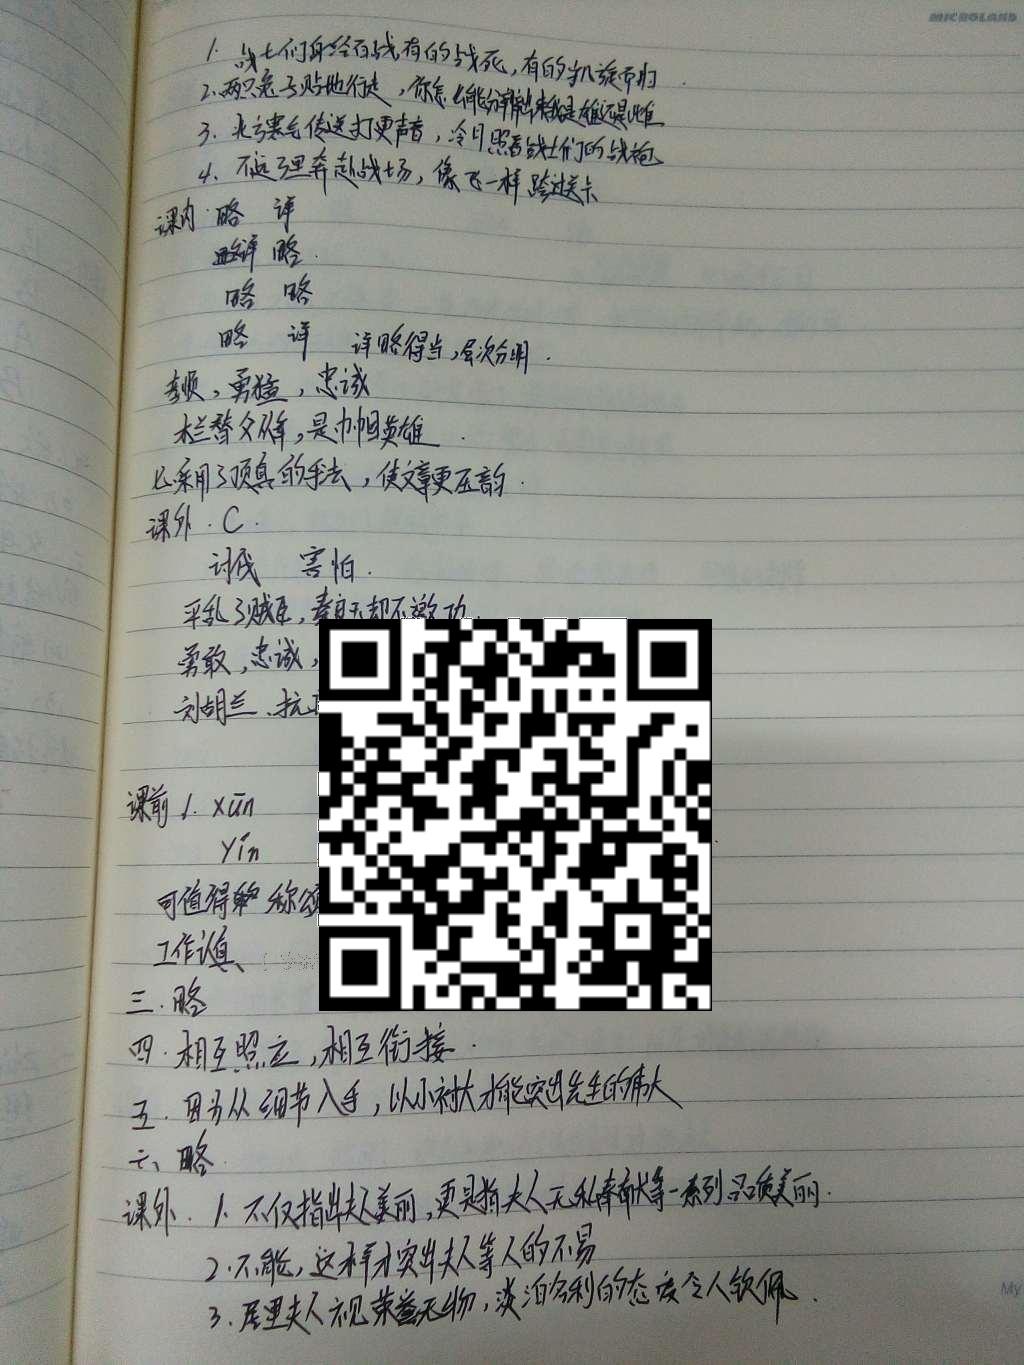 MICROLAND
1. 战士们身经百战有的战死,有的凯旋而归.
2. 两只兔子贴地行走,你怎么能分辨出来我是雄还是雌
3. 北方寒气传送打更声音,冷月照着战士们的战袍
4. 不远万里奔赴战场,像飞一样跨过关卡
课内 略 详
详 略.
略 略
略 详 详略得当,层次分明.
孝顺,勇猛,忠诚
木兰替父从军,是巾帼英雄.
七.采用了顶真的手法,使文章更压韵.
课外. C.
讨伐 害怕.
平乱了贼臣,却不邀功.
勇敢,忠诚,
刘胡兰、
课前 1. xūn
yīn
可值得 称颂
工作认真、
三.略
四.相互照应,相互衔接.
五.因为从细节入手,以小衬大才能突出先生的伟大
六、略.
课外. 1. 不仅指出夫人美丽,更是指夫人无私奉献等一系列品质美丽.
2. 不能,这样才突出夫人等人的不易
3. 居里夫人视荣誉无物,淡泊名利的态度令人钦佩.
My